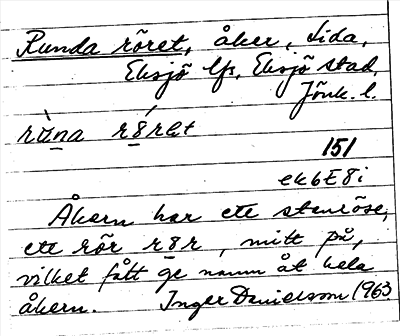 Runda röret, åker, Lida,
Eksjö lfs, Eksjö stad,
Jönk. l.
151
ek6E8i
Åkern har ett stenröse,
ett rör r8r, mitt på,
vilket fått ge namn åt hela
åkern. Inger Danielsson 1963